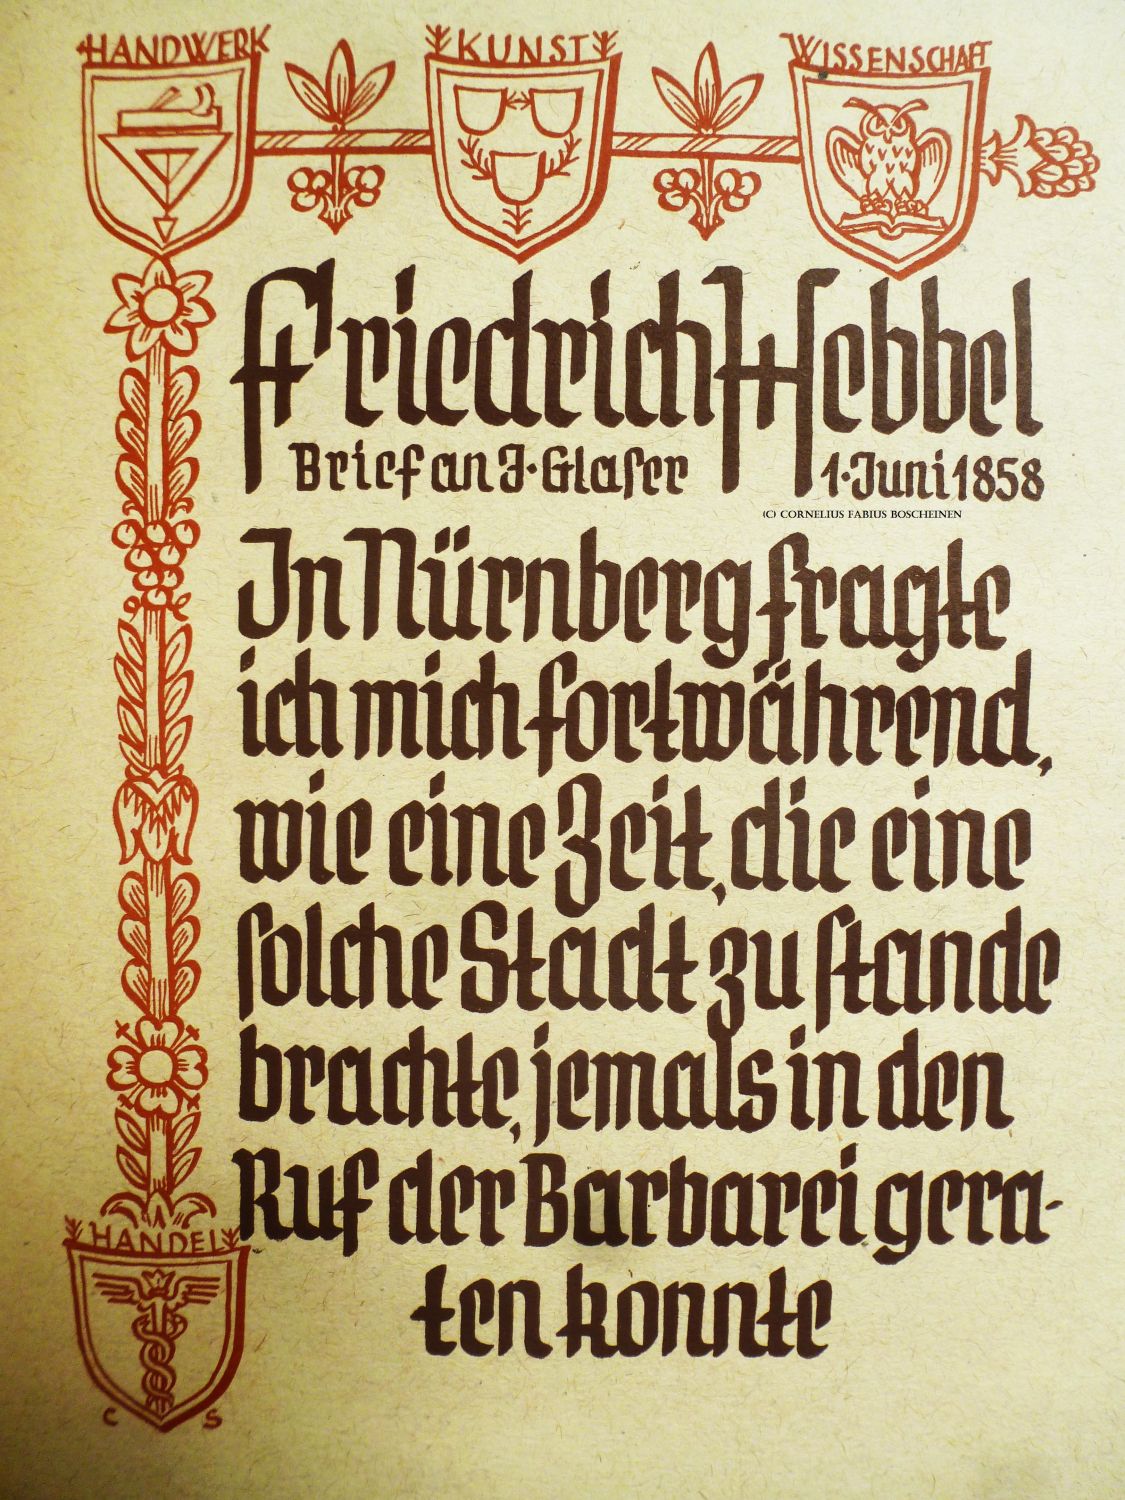 HANDWERK KUNST WISSENSCHAFT
Friedrich Hebbel
Brief an J. Glaſer 1. Juni 1858
(C) CORNELIUS FABIUS BOSCHEINEN
In Nürnberg fragte
ich mich fortwährend,
wie eine Zeit, die eine
ſolche Stadt zu ſtande
brachte, jemals in den
Ruf der Barbarei gera-
ten konnte
HANDEL
C S